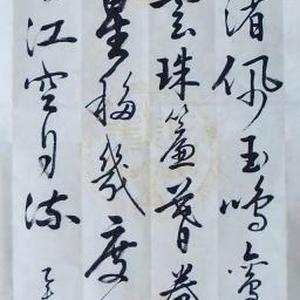 渚佩玉鳴鸞
雲珠簾暮卷
星移幾度
江空自流